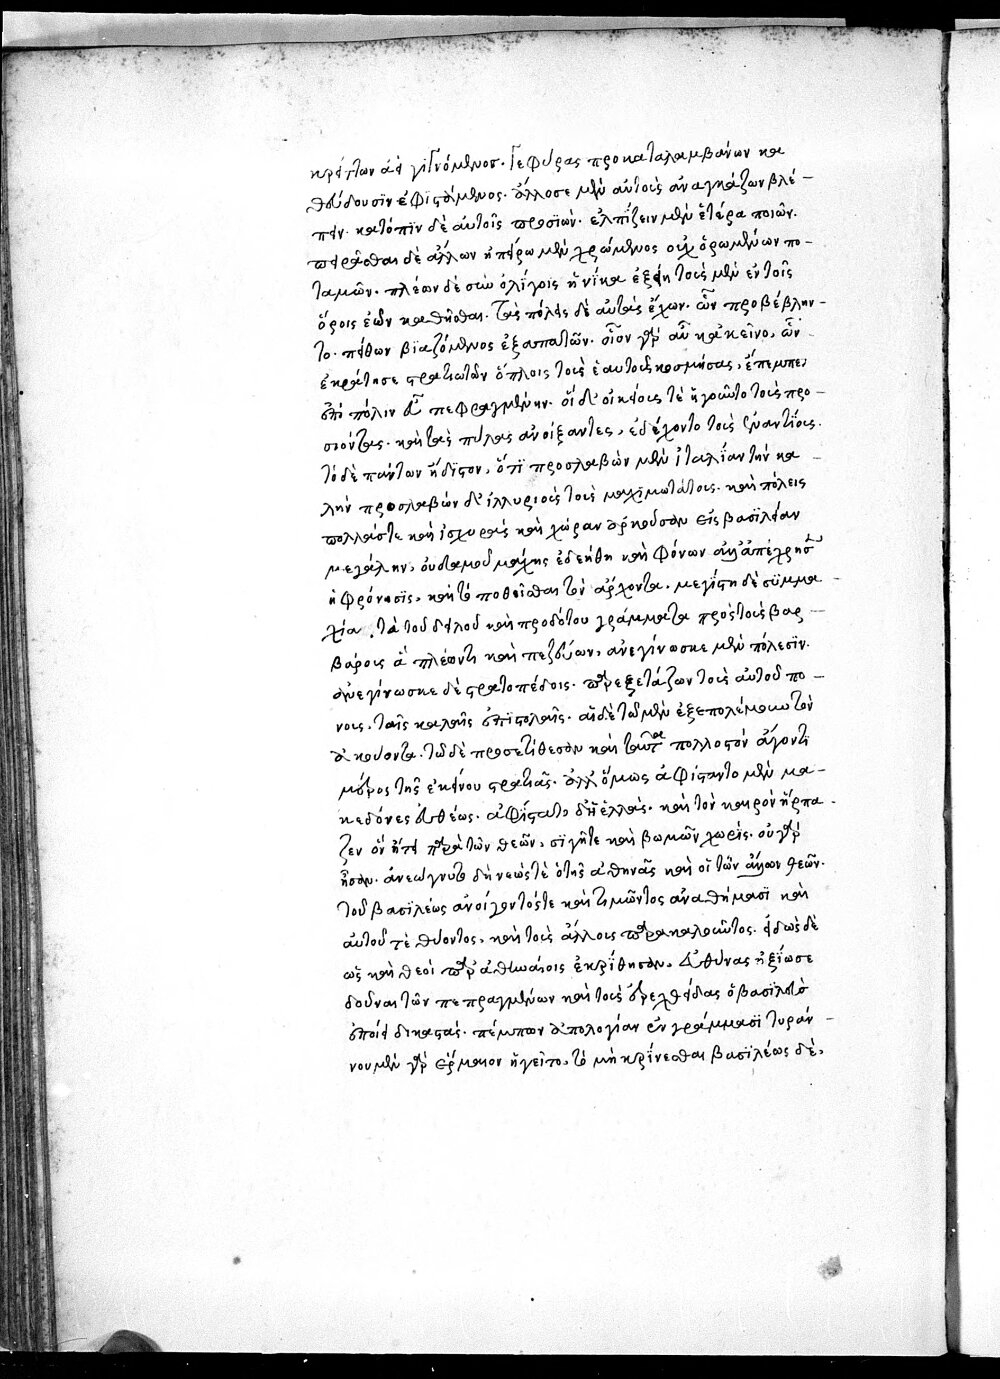 κρείττων ἀεὶ γιγνόμενος. γεφύρας προκαταλαμβάνων κα
θεύδουσϊν ἐφιϛάμενος. ἄλλοσε μὲν αὐτοὺς ἀναγκάζων βλέ-
πειν. κατόπϊν δὲ αὐτοῖς προσϊών. ἐλπίζειν μὲν ἕτερα ποιῶν.
πειρᾶσθαι δὲ ἄλλων ἠπείρω μὲν χρώμενος οὐχ ὁρωμένων πο-
ταμῶν. πλέων δὲ σὺν ὀλίγοις ἡνίκα ἐξῆν τοὺς μὲν ἐν τοῖς
ὅροις ἐῶν καθῆσθαι. τὰς πόλεις δὲ αὐτὰς ἔχων. ὧν προβέβλην-
το. πείθων βϊαζόμενος ἐξαπατῶν. οἷον γὰρ αὖ κἀκεῖνο, ὧν
ἐκράτησε ϛρατιωτῶν ὅπλοις τοὺς ἑαυτοῦ κοσμήσας, ἔπεμπεν
ἐπὶ πόλιν εὖ πεφραγμένην. οἱ δ' οἰκείους τὲ ἡγοῦντο τοὺς προ-
σιόντας. καὶ τὰς πύλας ἀνοίξαντες, ἐδέχοντο τοὺς ἐναντΐους.
τὸ δὲ πάντων ἥδϊϛον, ὅτϊ προσλαβὼν μὲν ἰταλΐαν τὴν κα-
λὴν προσλαβὼν δ' ἰλλυριοὺς τοὺς μαχϊμωτάτους. καὶ πόλεις
πολλάς τε καὶ ἰσχυρὰς καὶ χώραν ἀρκοῦσαν εἰς βασϊλείαν
μεγάλην, οὐδαμοῦ μάχης ἐδεήθη καὶ φόνων ἀλλ' ἀπέχρησεν
ἡ φρόνησϊς, καὶ τὸ ποθεῖσθαι τὸν ἄρχοντα. μεγίϛη δὲ σϋμμα
χία, τὰ τοῦ δειλοῦ καὶ προδότου γράμματα πρὸς τοὺς βαρ-
βάρους ἃ πλέοντι καὶ πεζεύων, ἀνεγίνωσκε μὲν πόλεσϊν.
ἀνεγίνωσκε δὲ ϛρατοπέδοις. παρεξετάζων τοὺς αὐτοῦ πό-
νους. ταῖς καλαῖς ἐπιϛολαῖς. αἱ δὲ τῶ μὲν ἐξεπολέμουν τὸν
ἀκούοντα. τῶ δὲ προσετίθεσαν καὶ ταῦτα πολλοϛὸν ἄγοντϊ
μέρος τῆς ἐκείνου ϛρατιᾶς. ἀλλ' ὅμως ἀφίϛαντο μὲν μα-
κεδόνες εὐθέως. ἀφίϛατο δ' ἡ ἑλλάς. καὶ τὸν καιρὸν ἥρπα-
ζεν ὃν ᾔτει παρὰ τῶν θεῶν, σϊγῆτε καὶ βωμῶν χωρὶς. οὐ γὰρ
ἦσαν. ἀνεώγνυτο δὴ νεώς τὲ ὁ τῆς ἀθηνᾶς καὶ οἱ τῶν ἄλλων θεῶν.
τοῦ βασϊλέως ἀνοίγοντός τε καὶ τιμῶντος ἀναθήμασϊ καὶ
αὐτοῦ τὲ θύοντος, καὶ τοὺς ἄλλους παρακαλοῦντος. εἰδὼς δὲ
ὡς καὶ θεοὶ παρ' ἀθηναίοις ἐκρΐθησαν, εὐθύνας ἠξΐωσε
δοῦναι τῶν πεπραγμένων καὶ τοὺς ἐρεχθείδας ὁ βασϊλεὺς
ἐποίει δικαϛάς. πέμπων ἀπολογίαν ἐν γράμμασϊ τυράν-
νου μὲν γὰρ ἕρμαιον ἡγεῖτο, τὸ μὴ κρΐνεσθαι βασϊλέως δὲ,